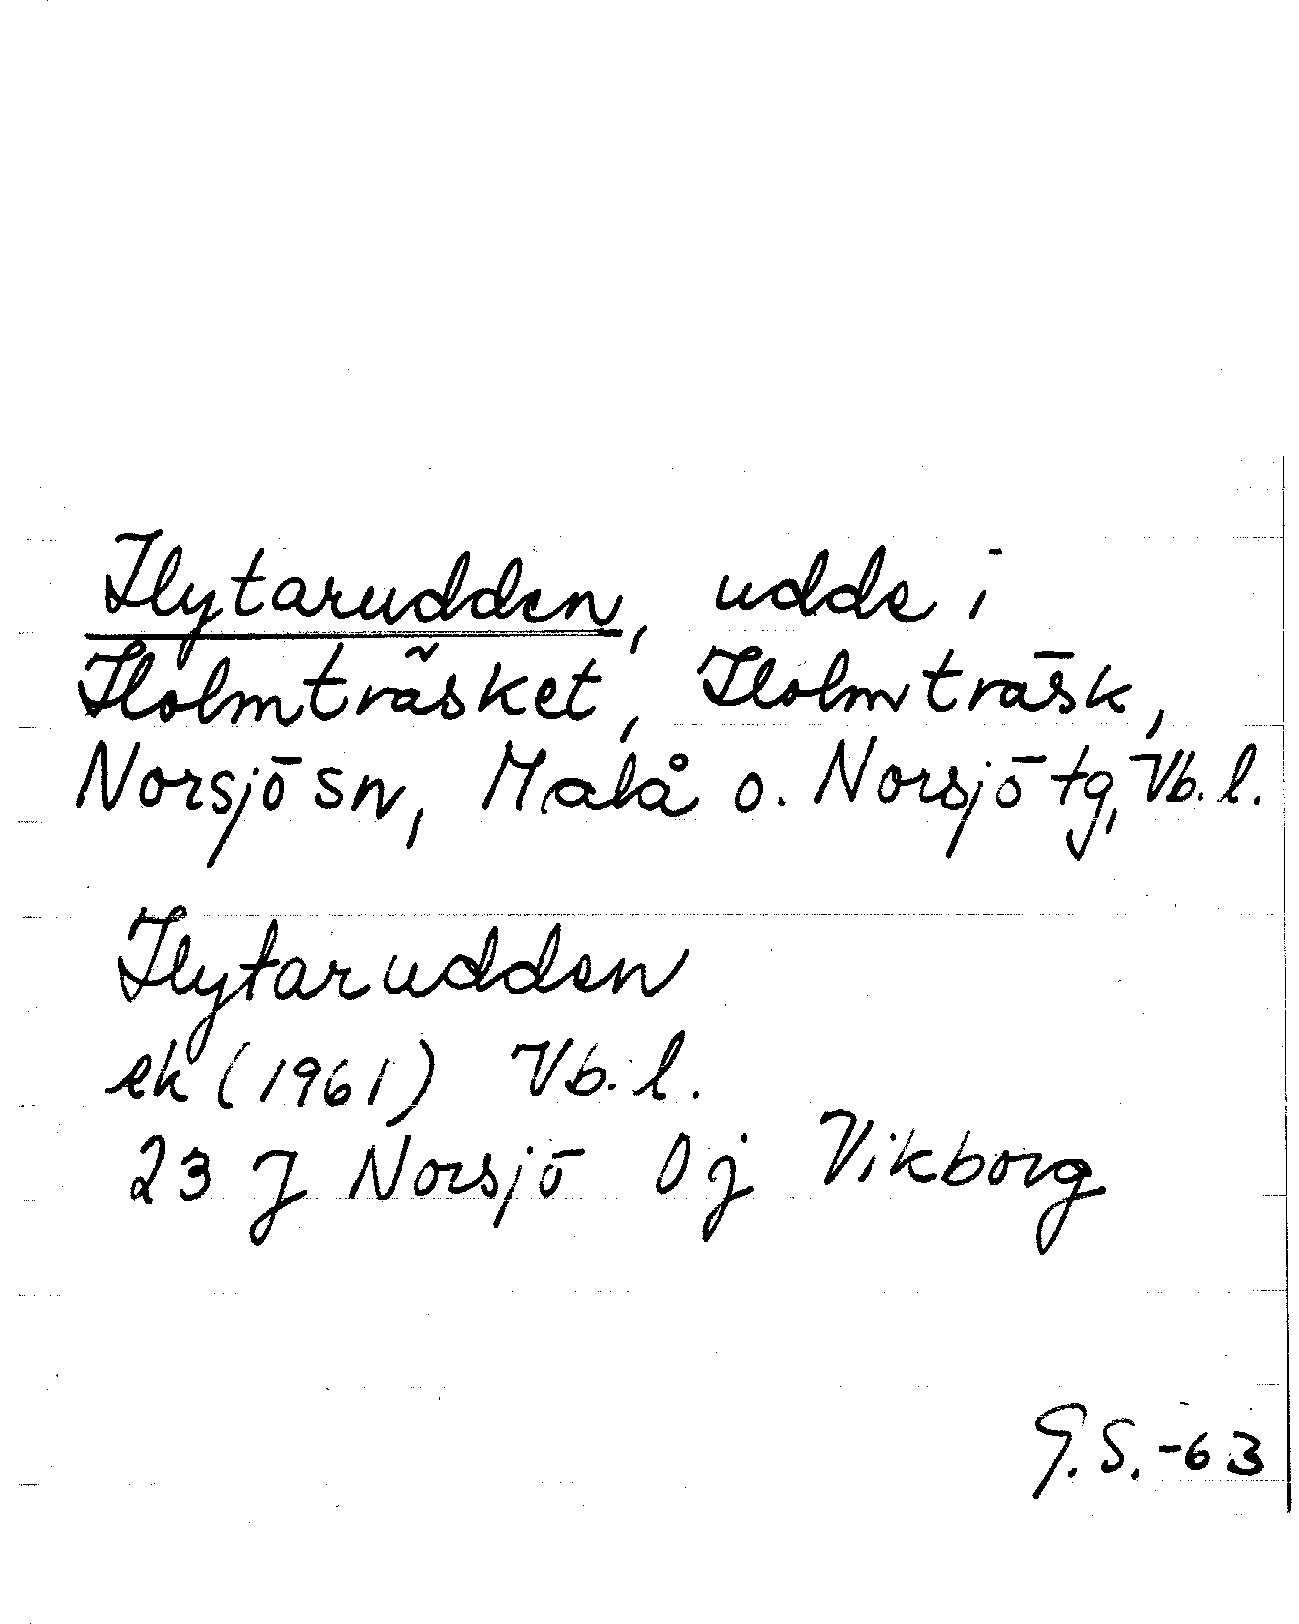 Hytarudden, udde i
Holmträsket, Holmträsk,
Norsjö sn, Malå o. Norsjö tg, Vb. l.
Hytarudden
ek (1961) Vb. l.
23 J Norsjö 0 j Vikborg
G. S. -63